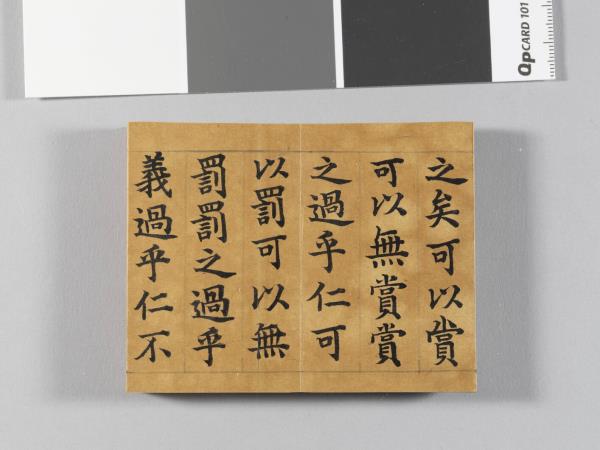 之矣可以賞
可以無賞賞
之過乎仁可
以罰可以無
罰罰之過乎
義過乎仁不
QpCARD 101